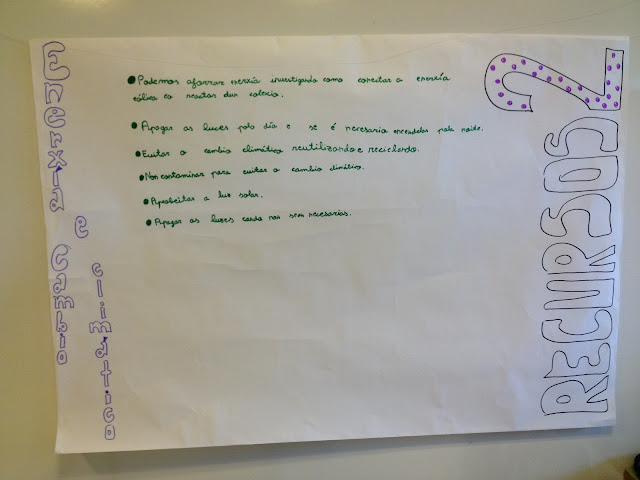 ENERXÍA e
Cambio climático
RECURSOS 2
• Podemos aforrar enerxía investigando como conectar a enerxía
eólica co reactor dun colexio.
• Apagar as luces polo día e se é necesario encendelas pola noite.
• Evitar o cambio climático reutilizando e reciclando.
• Non contaminar para evitar o cambio climático.
• Aprobeitar a luz solar.
• Apagar as luces cando non sean necesarias.